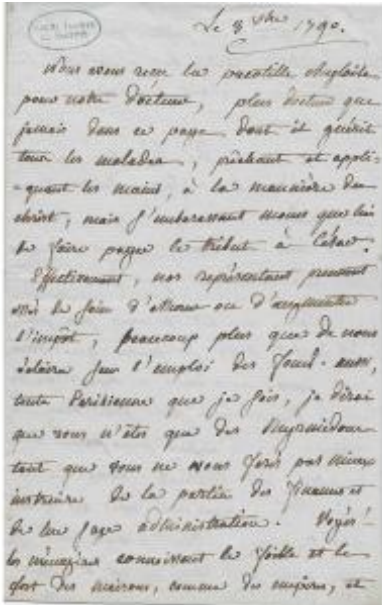 Le 8 bre 1790.
Nous avons reçu la pacotille
pour notre docteur, plus docteur que
jamais dans ce pays dont il guérit
tous les malades, prêchant et appli-
-quant les mains, à la manière du
christ, mais s'embarassant moins que lui
de faire payer le tribut à César.
Effectivement, nos représentans prennent
de soin d'asseoir ou d'augmenter
l'impôt, beaucoup plus que de nous
éclairer sur l'emploi des fonds. aussi,
toute Parisienne que je sois, je dirai
que vous n'êtes que des Myrmidons
tant que vous ne vous ferés pas mieux
instruire de la partie des finances et
de leur sage administration. Voyés!
les ménagères connoissent le foible et le
fort des maisons, comme des empires, et